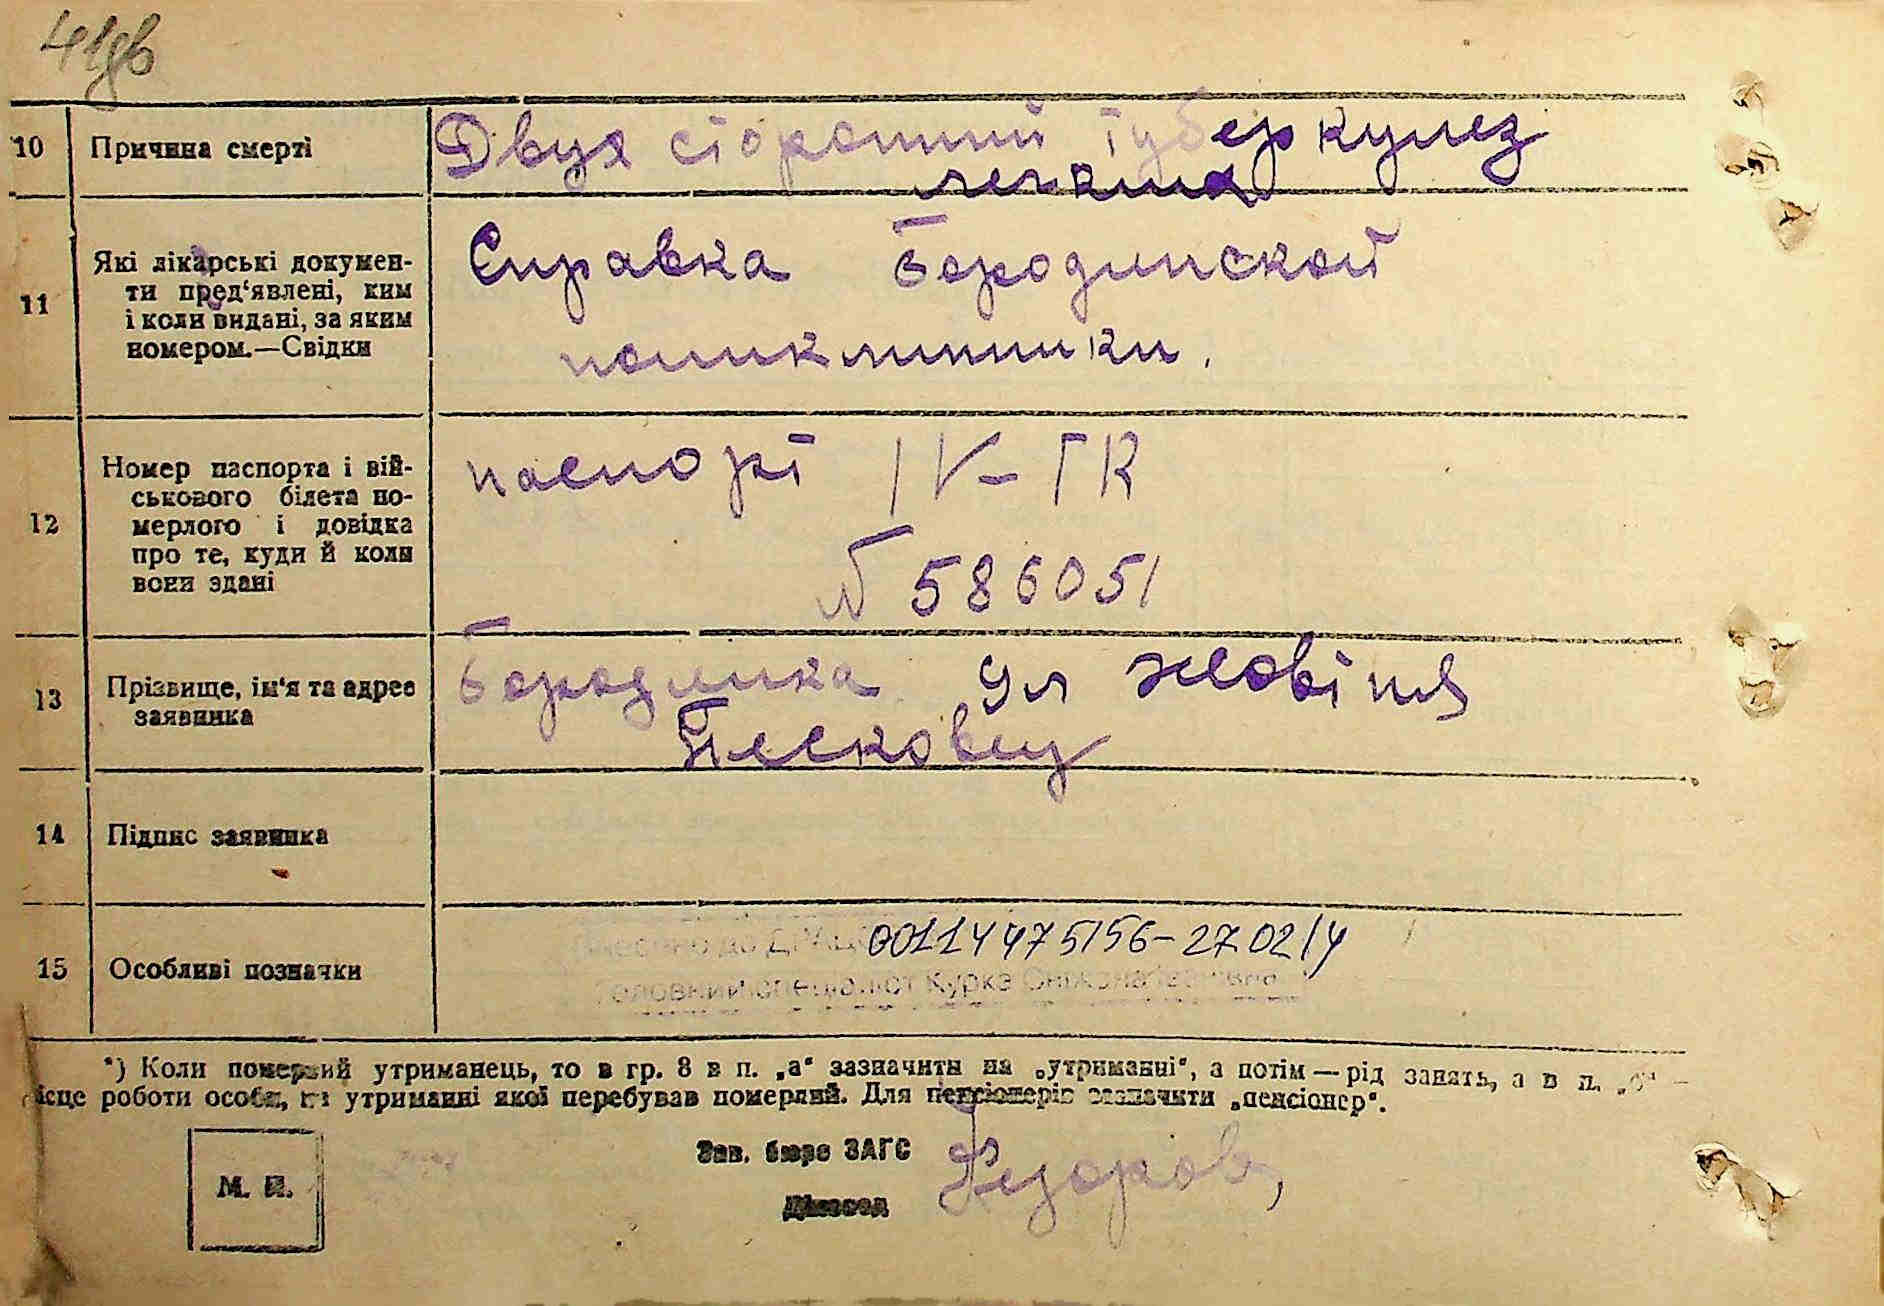 41дв
10 Причина смерті Двух сторонний туберкулез
легких
11 Які лікарські докумен-
ти пред'явлені, ким
і коли видані, за яким
номером.—Свідки
Справка Бородянской
поликлиники.
12 Номер паспорта і вій-
ськового білета по-
мерлого і довідка
про те, куди й коли
вони здані
паспорт IV-ГК
№ 586051
13 Прізвище, ім'я та адрес
заявника
Бородянка ул Жовтня
14 Підпис заявника
15 Особливі позначки
Внесено до ДРАЦС 00114475156-27 02
Головний спеціаліст Курка
*) Коли померший утриманець, то в гр. 8 в п. „а“ зазначити на „утриманні“, а потім — рід занять, а в п. „б“ —
місце роботи особи, на утриманні якої перебував померлий. Для пенсіонерів зазначити „пенсіонер“.
Зав. бюро ЗАГС
М. П.
Діловод